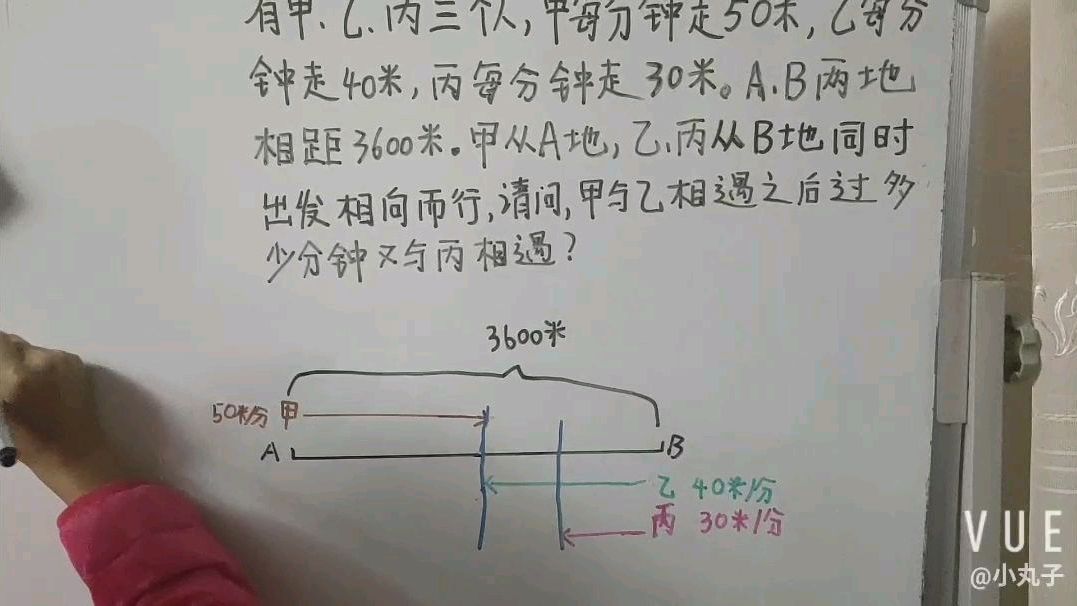 有甲、乙、丙三个人,甲每分钟走50米,乙每分
钟走40米,丙每分钟走30米。A.B两地
相距3600米。甲从A地,乙、丙从B地同时
出发相向而行,请问,甲与乙相遇之后过多
少分钟又与丙相遇?
3600米
50米/分 甲
A B
乙 40米/分
丙 30米/分
VUE
@小丸子